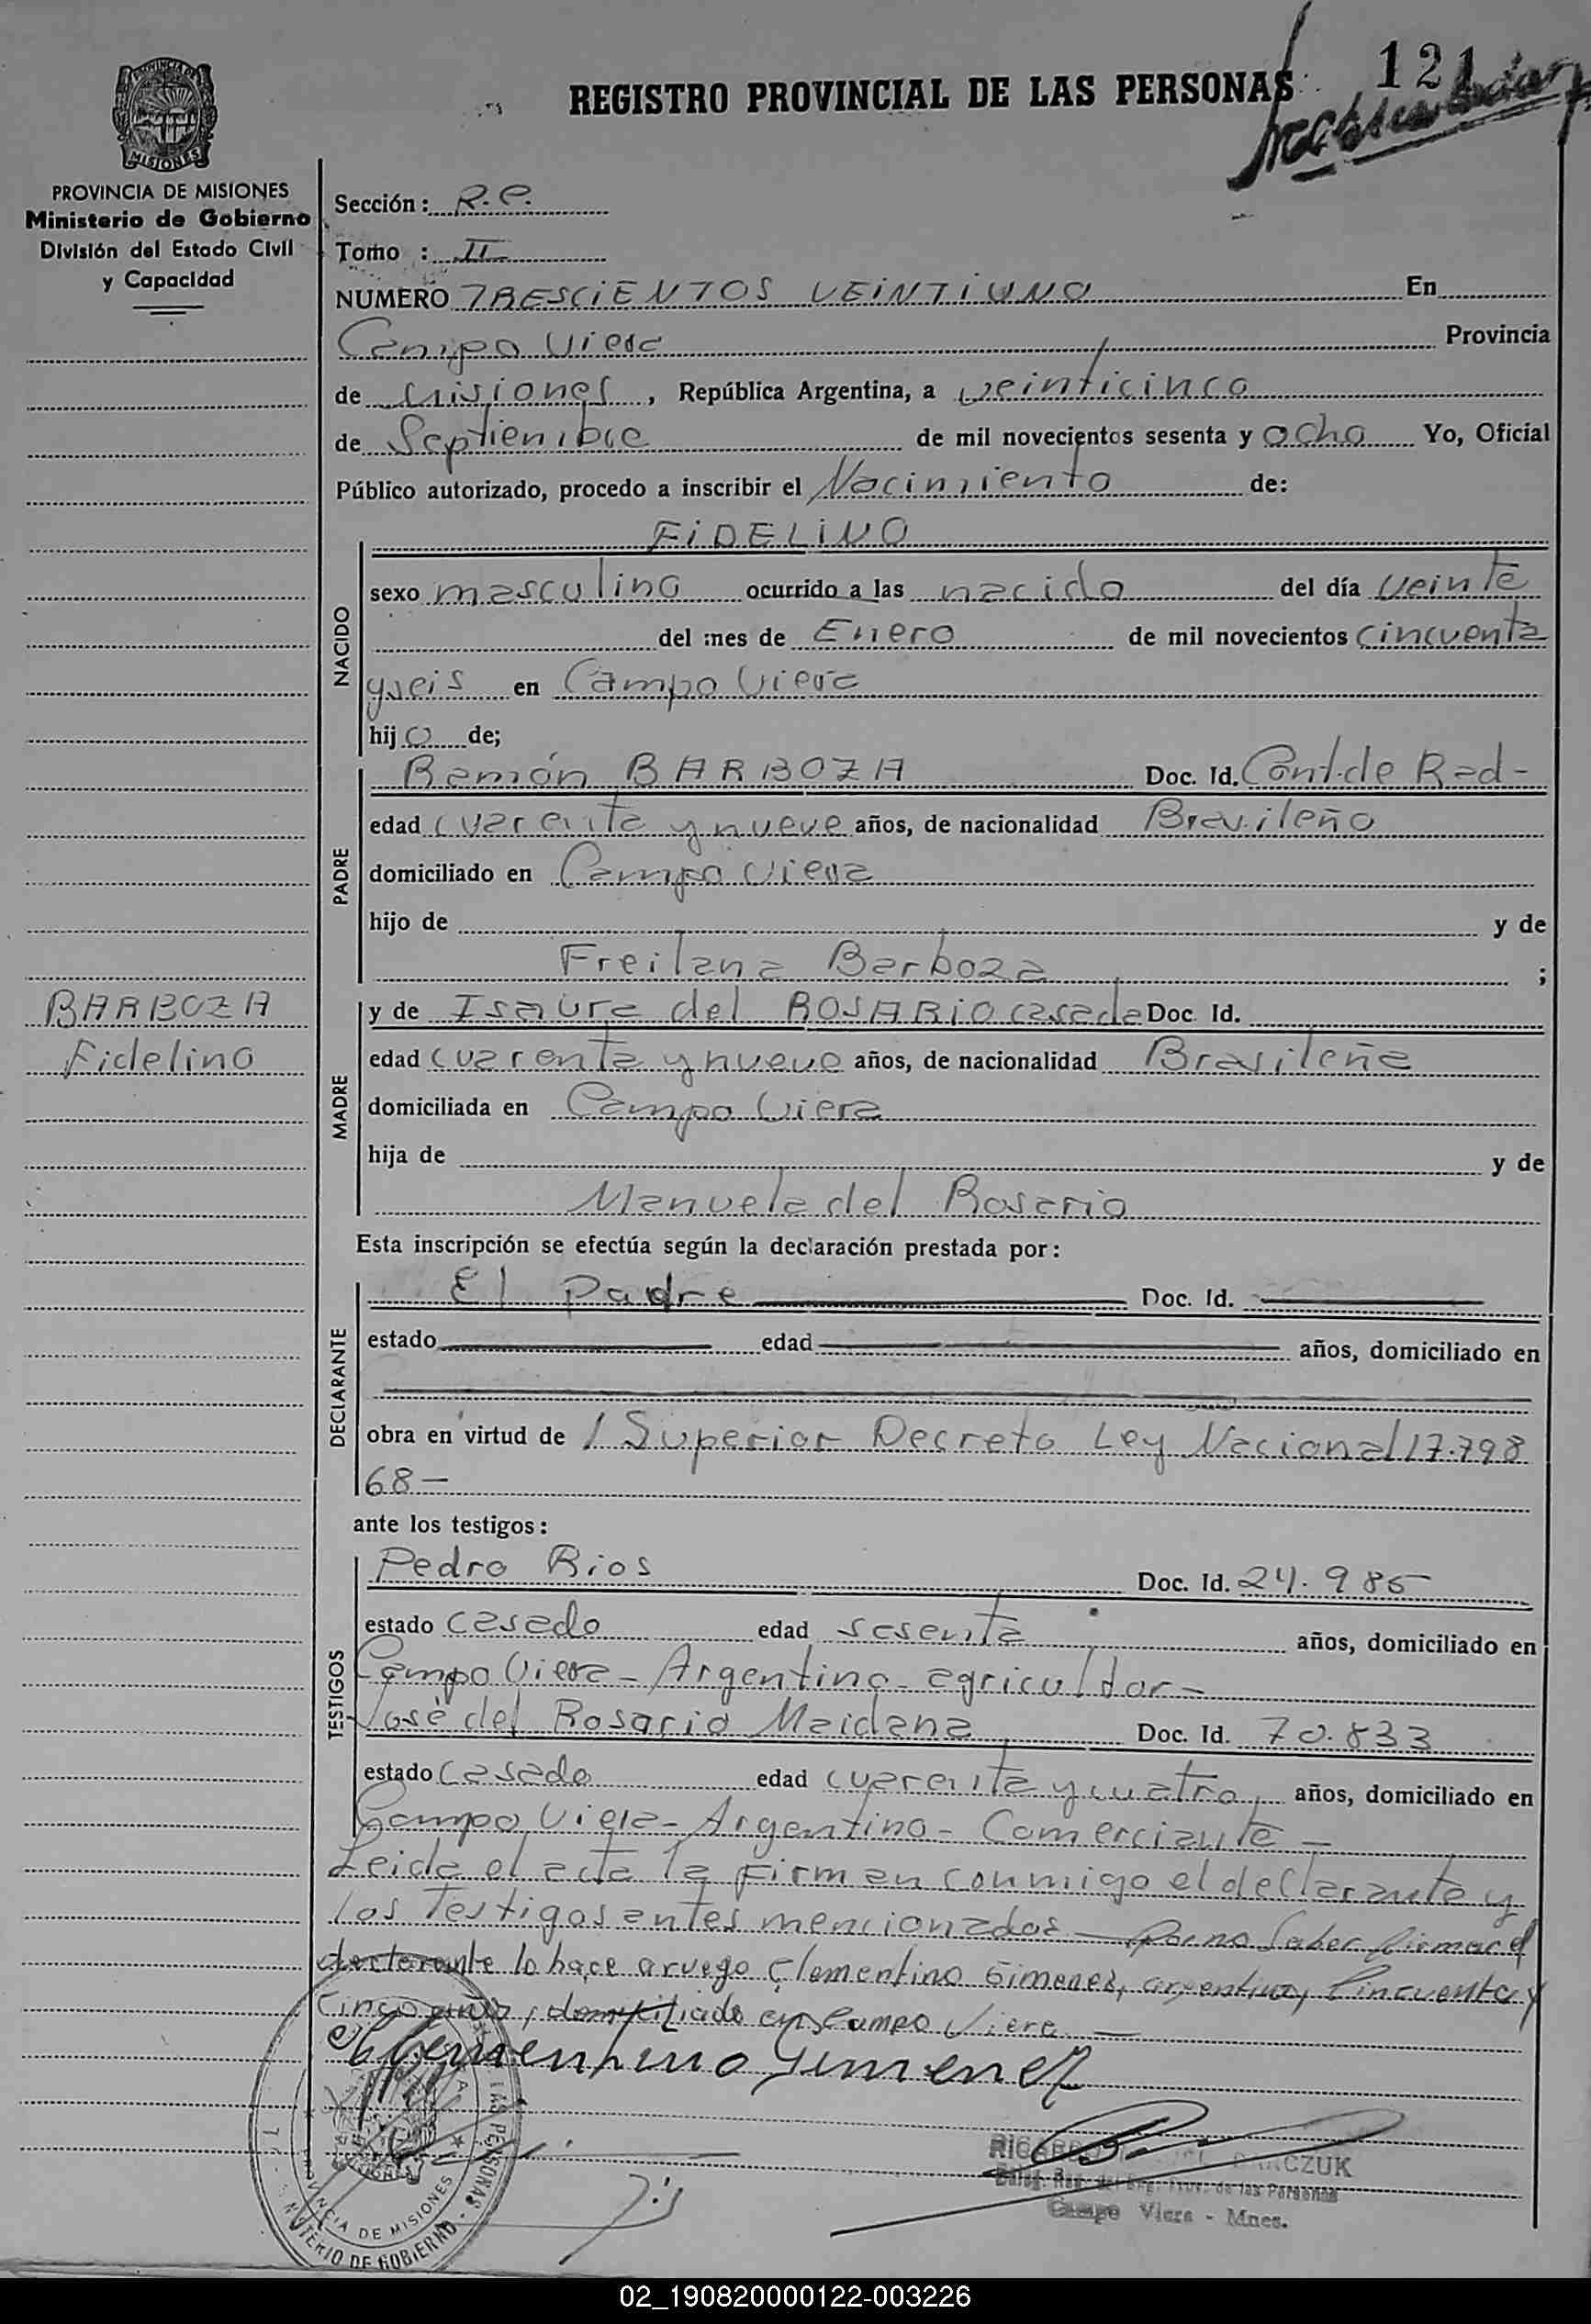 REGISTRO PROVINCIAL DE LAS PERSONAS
121
PROVINCIA DE MISIONES
PROVINCIA DE MISIONES
Ministerio de Gobierno
División del Estado Civil
y Capacidad
Sección: R.C.
Tomo : II
NUMERO TRESCIENTOS VEINTIUNO En
Campo Viera Provincia
de Misiones, República Argentina, a veinticinco
de Septiembre de mil novecientos sesenta y ocho Yo, Oficial
Público autorizado, procedo a inscribir el Nacimiento de:
NACIDO
FIDELINO
sexo masculino ocurrido a las nacido del día veinte
del mes de Enero de mil novecientos cincuenta
y seis en Campo Viera
hijo de;
PADRE
Ramón BARBOZA Doc. Id. Cont. de Rad-
edad cuarenta y nueve años, de nacionalidad Brasileño
domiciliado en Campo Viera
hijo de y de
Freilana Barboza ;
BARBOZA
Fidelino
MADRE
y de Isaura del ROSARIO casada Doc. Id.
edad cuarenta y nueve años, de nacionalidad Brasileña
domiciliada en Campo Viera
hija de y de
Manuela del Rosario
Esta inscripción se efectúa según la declaración prestada por:
DECLARANTE
El Padre Doc. Id.
estado edad años, domiciliado en
obra en virtud de / Superior Decreto Ley Nacional 17.798
68-
ante los testigos:
TESTIGOS
Pedro Rios Doc. Id. 24.985
estado casado edad sesenta años, domiciliado en
Campo Viera - Argentino - agricultor -
José del Rosario Maidana Doc. Id. 70.833
estado casado edad cuarenta y cuatro años, domiciliado en
Campo Viera - Argentino - Comerciante -
Leida el acta la firman conmigo el declarante y
los Testigos antes mencionados - por no saber firmar el
declarante lo hace a ruego Clementino Gimenez, argentino, cincuenta y
cinco años, domiciliado en Campo Viera -
Clementino Gimenez
CZUK
Deleg. Reg. del Reg. Prov. de las Personas
Campo Viera - Mnes.
LAS PERSONAS
PROVINCIA DE MISIONES
MINISTERIO DE GOBIERNO
02_190820000122-003226